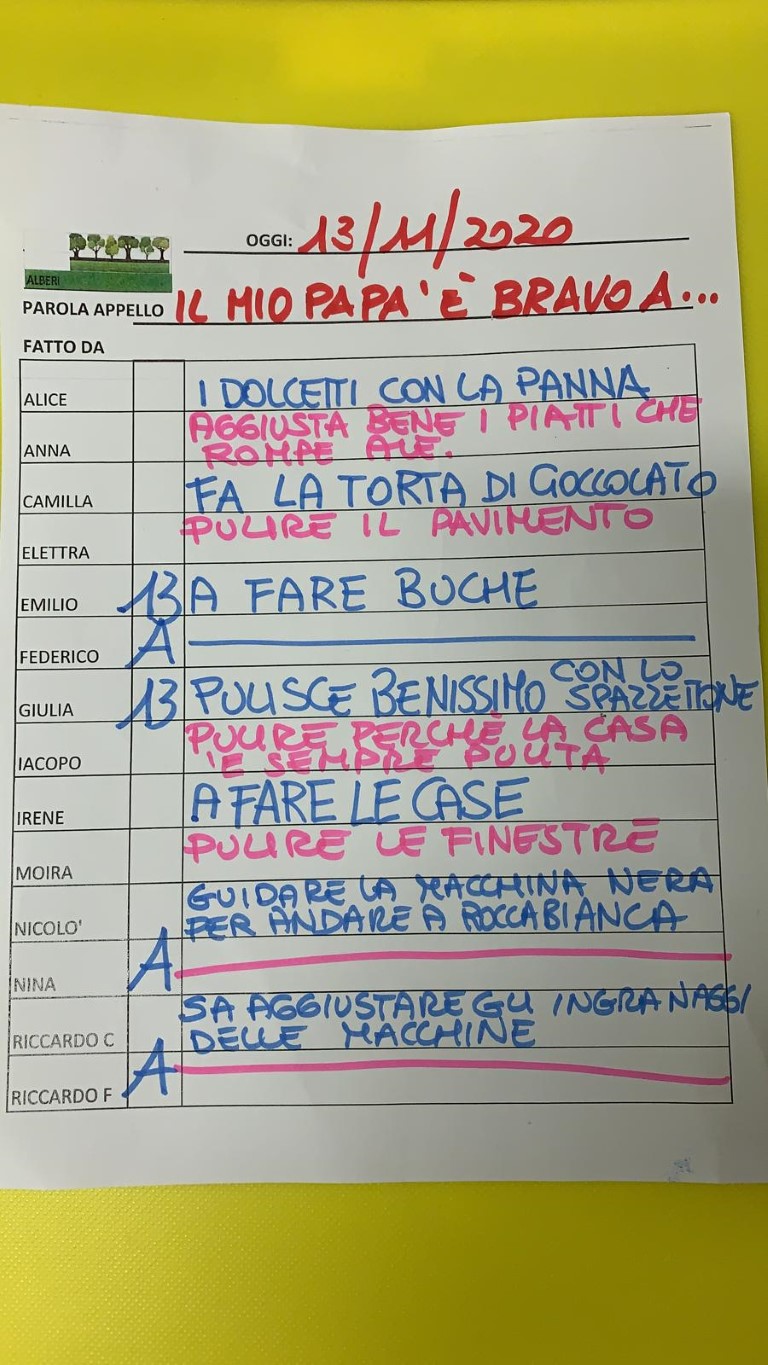 OGGI: 13/11/2020
ALBERI
PAROLA APPELLO IL MIO PAPA' È BRAVO A...
FATTO DA
ALICE I DOLCETTI CON LA PANNA
ANNA AGGIUSTA BENE I PIATTI CHE
ROMPE ALE.
CAMILLA FA LA TORTA DI GOCCOLATO
ELETTRA PULIRE IL PAVIMENTO
EMILIO 13 A FARE BUCHE
FEDERICO A
GIULIA 13 PULISCE BENISSIMO CON LO
SPAZZETTONE
IACOPO PULIRE PERCHÈ LA CASA
'E SEMPRE PULITA
IRENE A FARE LE CASE
MOIRA PULIRE LE FINESTRE
NICOLO' GUIDARE LA MACCHINA NERA
PER ANDARE A ROCCABIANCA
NINA A
RICCARDO C SA AGGIUSTARE GLI INGRANAGGI
DELLE MACCHINE
RICCARDO F A